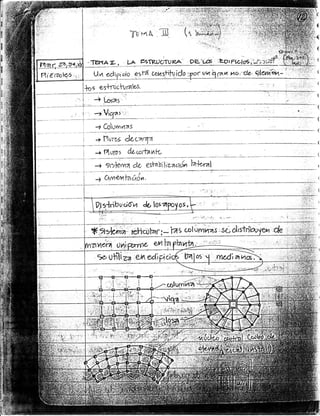 TEMA III
TEMA I, LA ESTRUCTURA DE LOS EDIFICIOS
Miercoles
Un edificio está constituido por un gran no. de elemen-
tos estructurales.
→ Losas
→ Vigas
→ Columnas
→ Muros de carga
→ Muros de cortante
→ Sistema de estabilización lateral
→ Cimentación.
Distribución de los apoyos.
* Sistema reticular: las columnas se distribuyen de
manera uniforme en la planta.
Se utiliza en edificios bajos y medianos.
columna
viga
losa
núcleo central